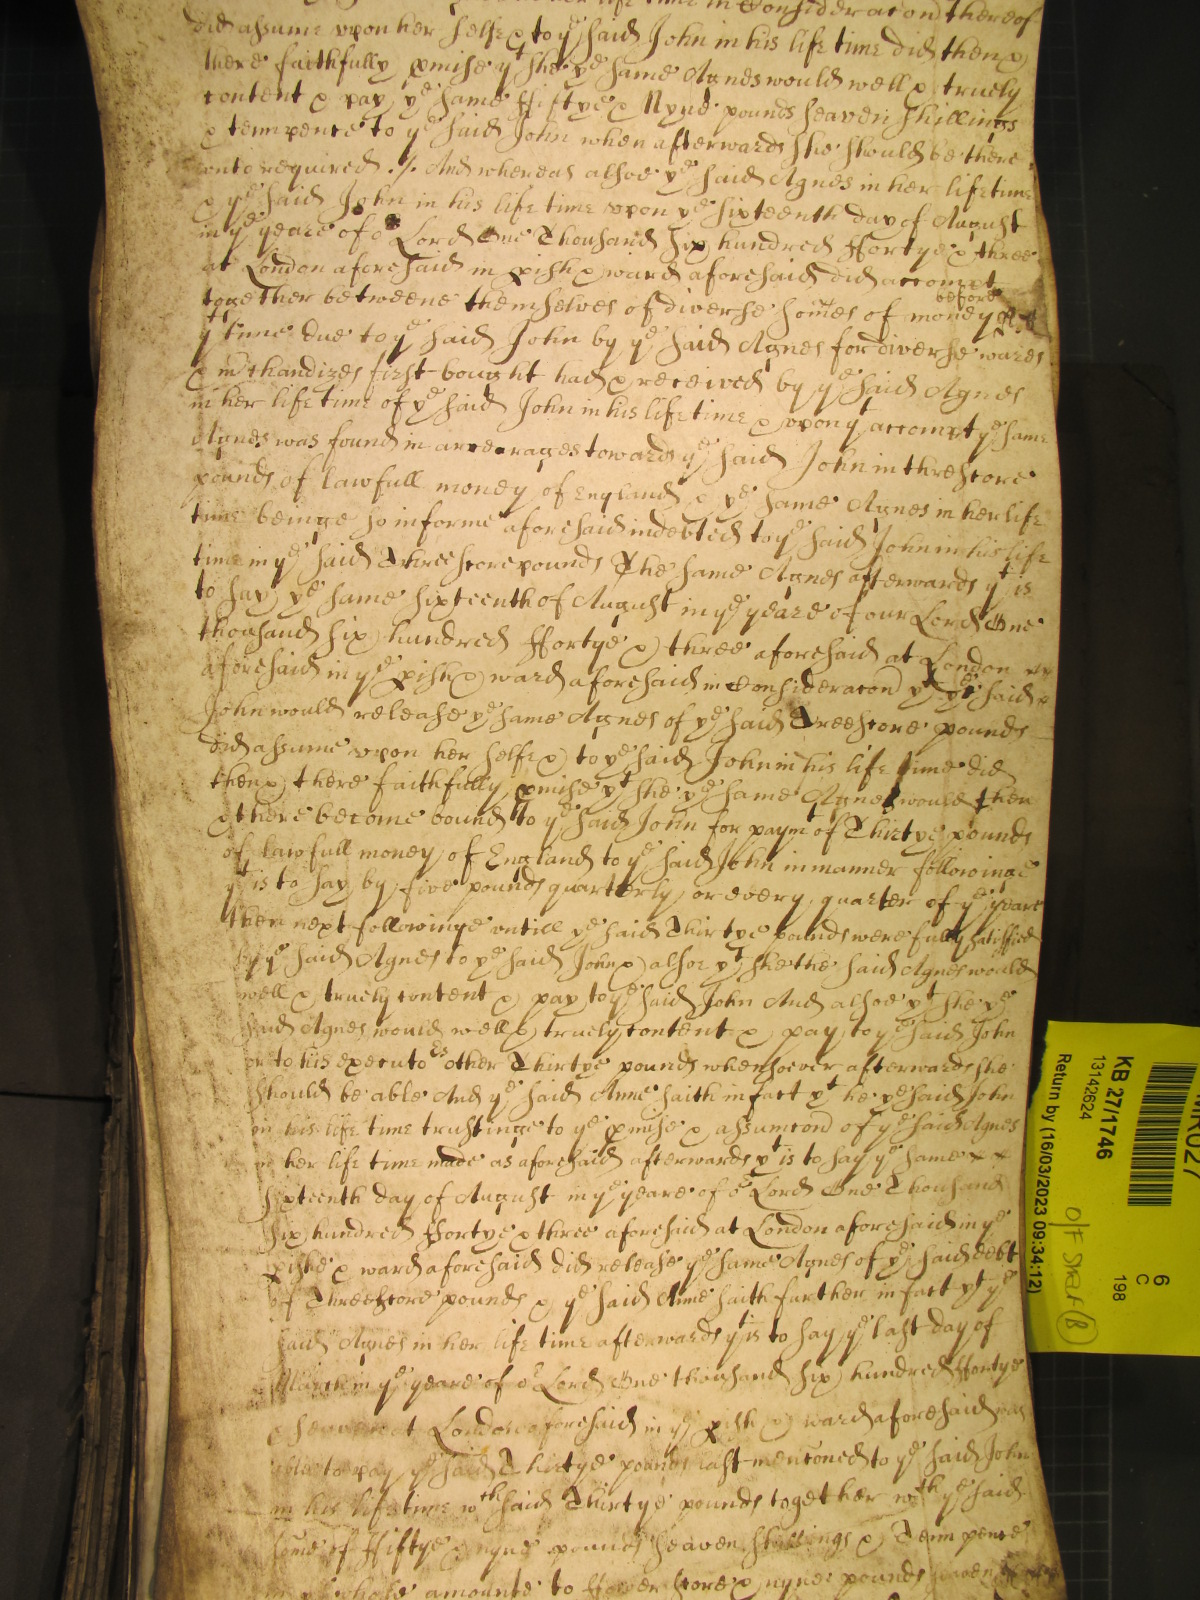 her life time in Consideracon thereof
did assume vpon her selfe & to ye said John in his life time did then &
there faithfully pmise yt she ye same Agnes would well & truely
content & pay ye same ffiftye & Nyne pounds seaven shillings
& tennpence to ye said John when afterwards she should be there
vnto required ./. And whereas alsoe ye said Agnes in her life time
& ye said John in his life time vpon ye sixteenth day of August
in ye yeare of or Lord One Thousand six hundred ffortye & three
at London aforesaid in pish & ward aforesaid did accompt
together betweene themselves of diverse somes of money before
yt time due to ye said John by ye said Agnes for diverse wares
& mrchandizes first bought had & received by ye said Agnes
in her life time of ye said John in his life time & vpon yt accompt ye same
Agnes was found in arrerages towards ye said John in threscore
pounds of lawfull money of England & ye same Agnes in her life
time beinge so in forme aforesaid indebted to ye said John in his life
time in ye said Threescore pounds The same Agnes afterwards yt is
to say ye same sixteenth of August in ye yeare of our Lord One
thousand six hundred ffortye & three aforesaid at London
aforesaid in ye pish & ward aforesaid in Consideracon yt ye said
John would release ye same Agnes of ye said Treescore pounds
did assume vpon her selfe & to ye said John in his life time did
then & there faithfully pmise yt she ye same Agnes would then
& there become bound to ye said John for paymt of Thirtye pounds
of lawfull money of England to ye said John in manner followinge
yt is to say by five pounds quarterly or every quarter of ye yeare
then next followinge vntill ye said Thirtye pounds were fully satisfied
by ye said Agnes to ye said John & alsoe yt she the said Agnes would
well & truely content & pay to ye said John And alsoe yt she ye
said Agnes would well & truely content & pay to ye said John
or to his executors other Thirtye pounds whensoever afterwards she
should be able And ye said Anne saith in fact yt he ye said John
in his life time trustinge to ye pmise & assumcon of ye said Agnes
in her life time made as aforesaid afterwards yt is to say ye same
sixteenth day of August in ye yeare of or Lord One Thousand
six hundred ffortye & three aforesaid at London aforesaid in ye
pishe & ward aforesaid did release ye same Agnes of ye said debt
of Threescore pounds & ye said Anne saith further in fact yt ye
said Agnes in her life time afterwards yt is to say ye last day of
in ye yeare of or Lord One thousand six hundred ffortye
& seaven at London aforesaid in ye pish & ward aforesaid was
able to pay ye said Thirtye pounds last mencioned to ye said John
in his life time wch said Thirtye pounds together wth ye said
some of ffiftye & nyne pounds seaven shillings & Tenn pence
in ye whole amounte to ffower score & nyne pounds
KB 27/1746
13142624
Return by (16/03/2023 09:34:12)
6
C
198
O/F Shelf (B)